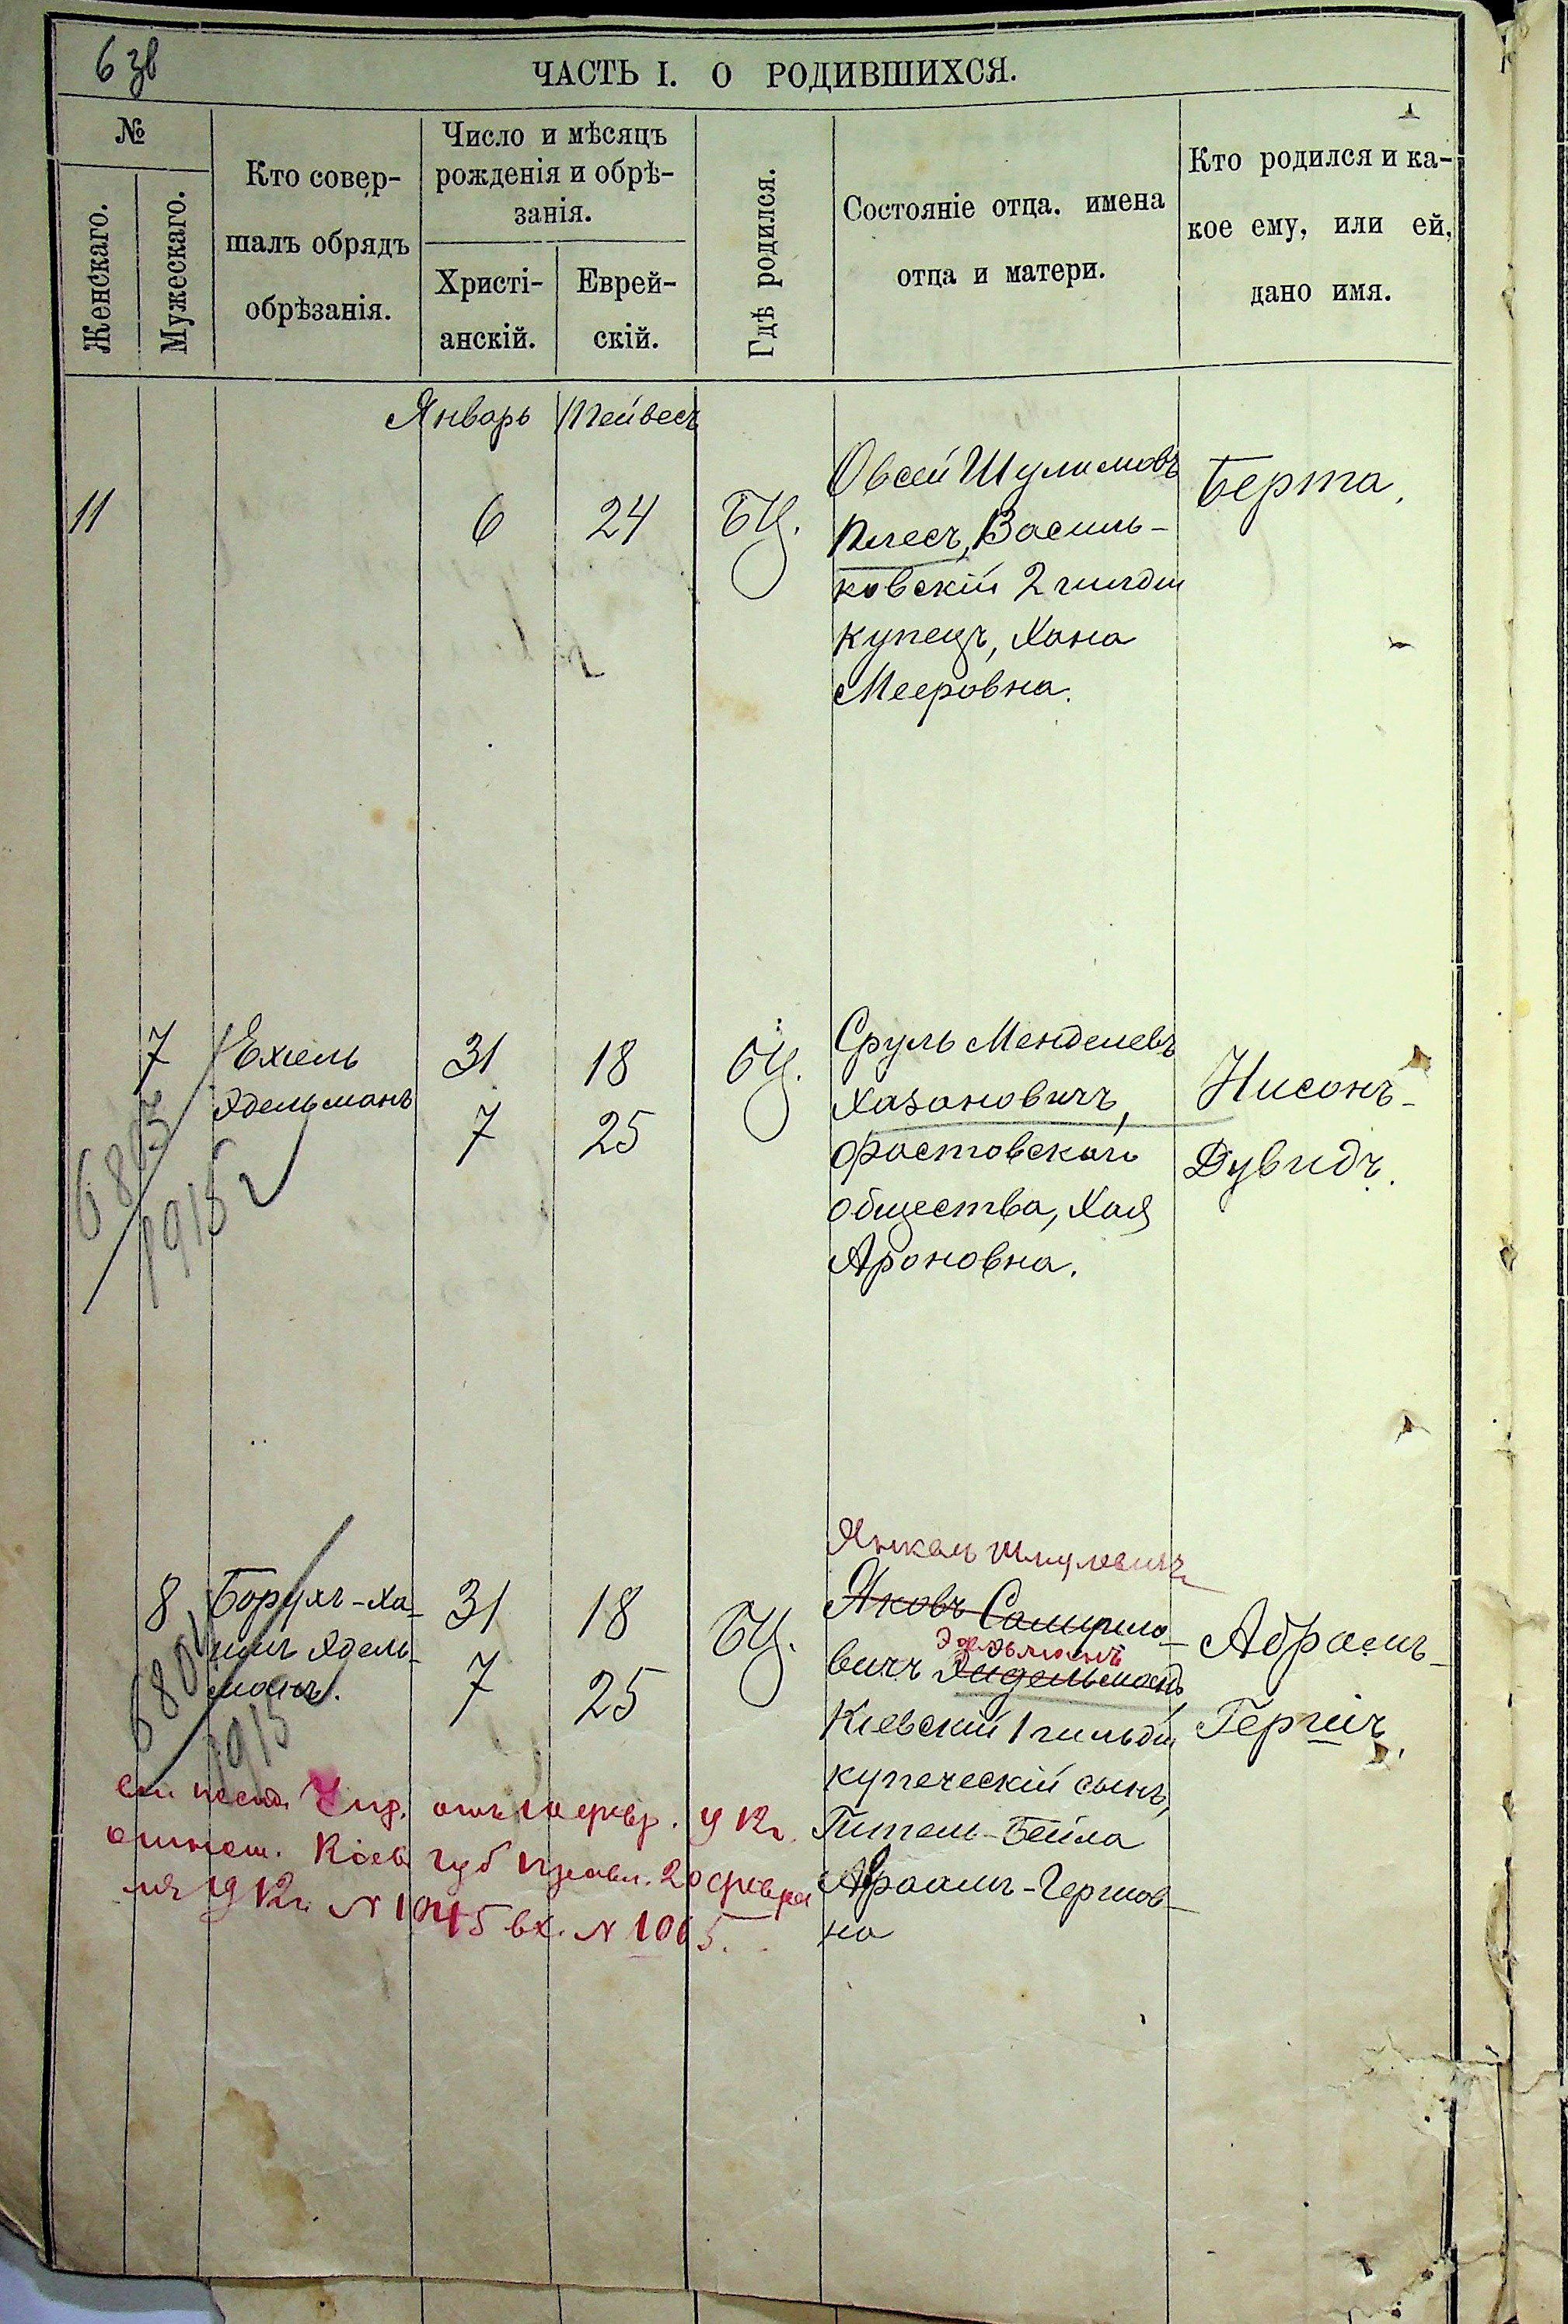 6 зв
ЧАСТЬ I. О РОДИВШИХСЯ.
№
Женскаго.
Мужескаго.
Кто совер-
шалъ обрядъ
обрѣзанія.
Число и мѣсяцъ
рожденія и обрѣ-
занія.
Христі-
анскій.
Еврей-
скій.
Гдѣ родился.
Состояніе отца. имена
отца и матери.
Кто родился и ка-
кое ему, или ей,
дано имя.
Январь Тейвесъ
11
6
24
БЦ.
Овсей Шулимовъ
Плесъ, Василь-
ковскій 2 гильдіи
купецъ, Хана
Мееровна.
Берта.
7
Ехіель
Эдельманъ
31
7
18
25
БЦ.
Сруль Менделевъ
Хазановичъ,
Фастовскаго
общества, Хая
Ароновна.
Нисонъ-
Дувидъ.
6803
1915 г
8
Борухъ-Ха-
имъ Эдель-
манъ.
31
7
18
25
БЦ.
Янкель Шмулевичъ
Яковъ Самуило-
Эдельманъ
вичъ Айдельманъ,
Кіевскій 1 гильдіи
купеческій сынъ,
Гитель-Бейла
Абрамъ-Гершов-
на
Абрамъ-
Гершъ.
6804
1915
отъ 10 февр. 912 г.
отнош. Кіев. губ правл. 20 февра
ля 912 г. N 1045 вх. N 1065.